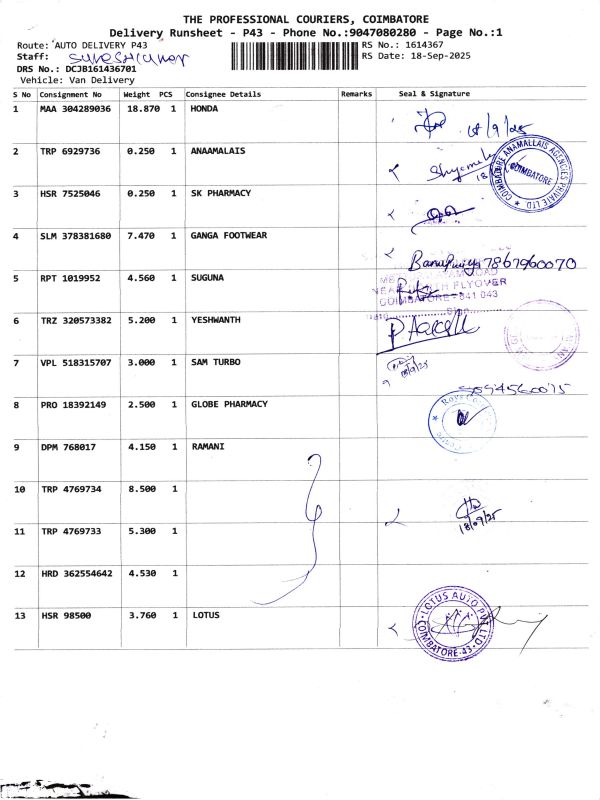 THE PROFESSIONAL COURIERS, COIMBATORE
Delivery Runsheet - P43 - Phone No.:9047080280 - Page No.:1
Route: AUTO DELIVERY P43 RS No.: 1614367
Staff: RS Date: 18-Sep-2025
DRS No.: DCJB161436701
Vehicle: Van Delivery
S No Consignment No Weight PCS Consignee Details Remarks Seal & Signature
1 MAA 304289036 18.870 1 HONDA
18/9/25
2 TRP 6929736 0.250 1 ANAAMALAIS
COIMBATORE ANAMALLAIS AGENCIES PRIVATE LTD
COIMBATORE
3 HSR 7525046 0.250 1 SK PHARMACY
4 SLM 378381680 7.470 1 GANGA FOOTWEAR
7867960070
5 RPT 1019952 4.560 1 SUGUNA
FLYOVER
COIMBATORE - 641 043
6 TRZ 320573382 5.200 1 YESHWANTH
7 VPL 518315707 3.000 1 SAM TURBO
18/9/25
8 PRO 18392149 2.500 1 GLOBE PHARMACY
9 DPM 768017 4.150 1 RAMANI
10 TRP 4769734 8.500 1
18/09/25
11 TRP 4769733 5.300 1
12 HRD 362554642 4.530 1
13 HSR 98500 3.760 1 LOTUS
LOTUS AUTO PVT LTD
COIMBATORE-43